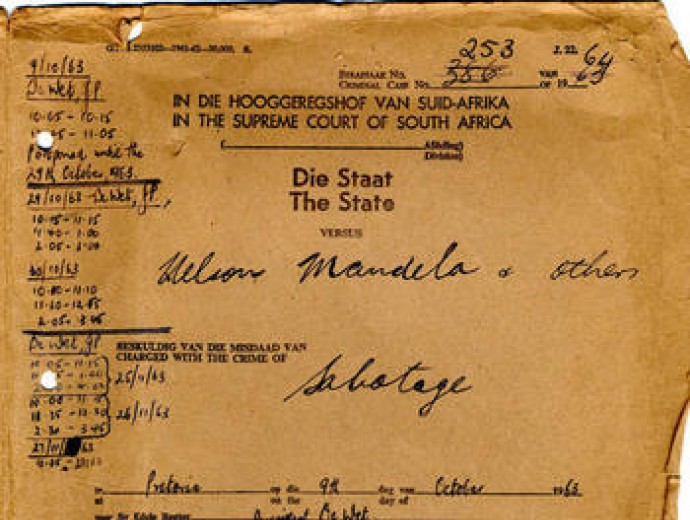 J. 22.
253
64
STRAFSAAK No. 356 VAN
CRIMINAL CASE No. OF 1963
IN DIE HOOGGEREGSHOF VAN SUID-AFRIKA
IN THE SUPREME COURT OF SOUTH AFRICA
( Afdeling)
Division)
Die Staat
The State
VERSUS
Nelson Mandela & others
BESKULDIG VAN DIE MISDAAD VAN
CHARGED WITH THE CRIME OF
Sabotage
te Pretoria op die 9th dag van October 1963
at on the day of
De Wet
9/10/63
De Wet, JP
10.05 - 10.15
- 11.05
Postponed until the
29th October, 1963.
29/10/63 De Wet, JP,
10.15 - 11.15
- 1.00
2.05 -
30/10/63
- 11.10
2.05 - 3.45
De Wet, JP
25/11/63
26/11/63
2.30 - 3.45
27/11/63